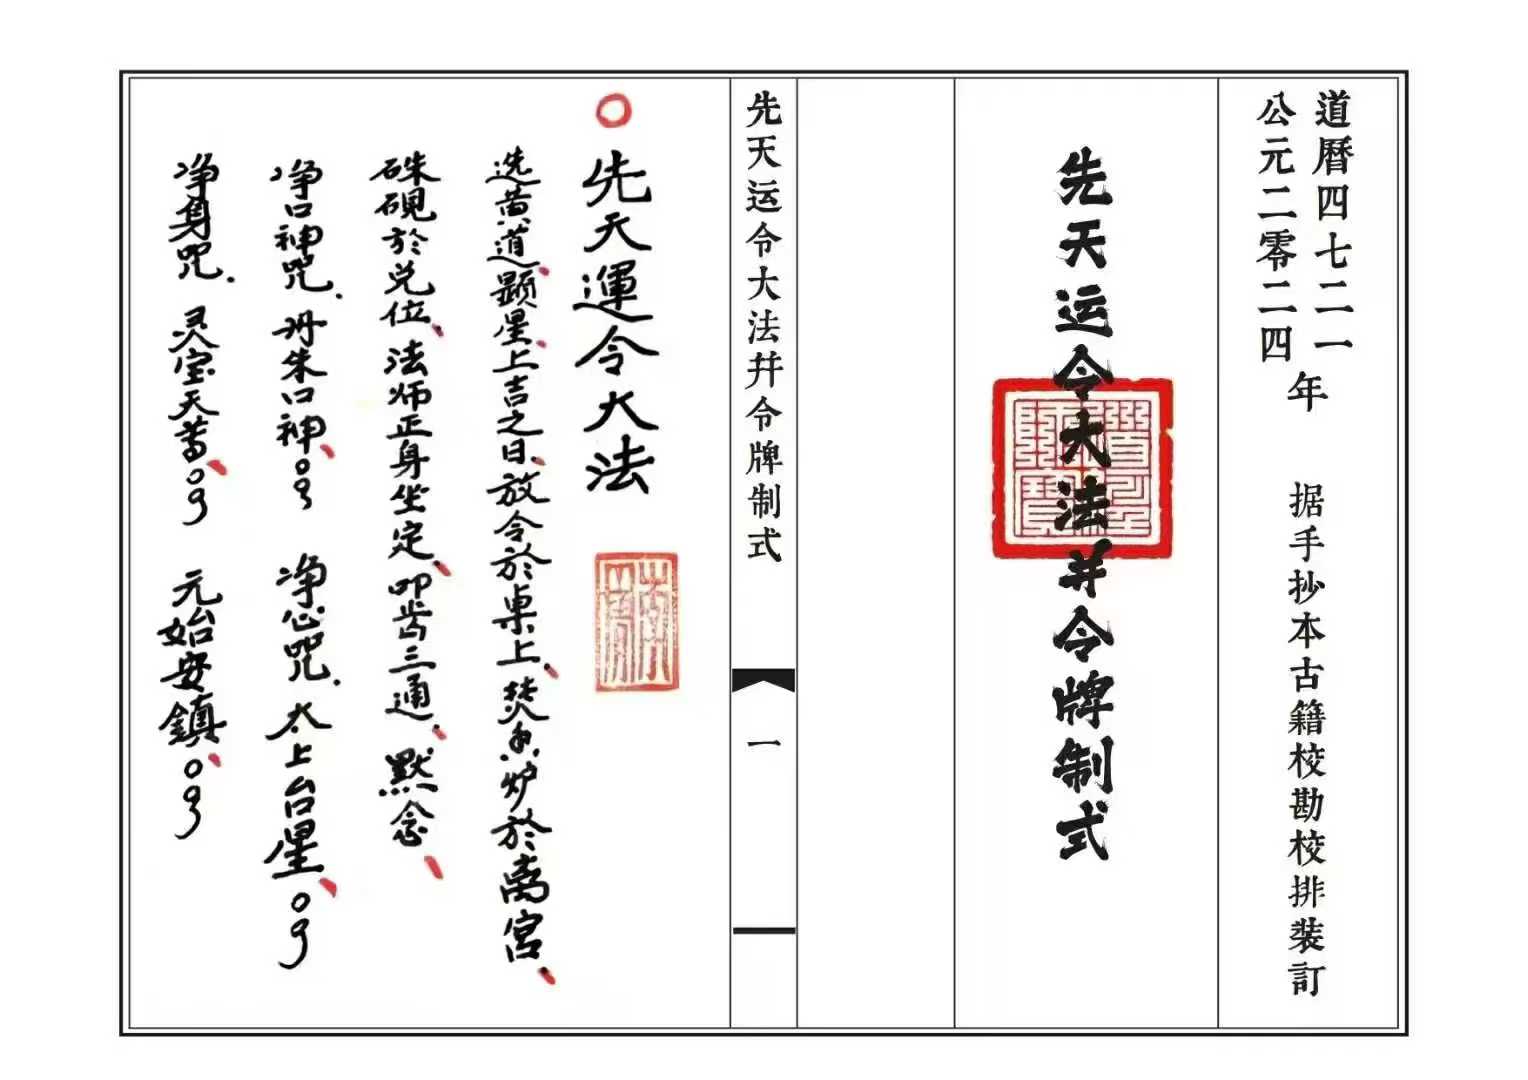 道曆四七二一
公元二零二四
年 据手抄本古籍校勘校排装訂
先天运令大法并令牌制式
先天运令大法并令牌制式
一
先天運令大法
选黄道顕星、上吉之日、放令於桌上、焚香炉於离宫、
硃硯於兑位、法师正身坐定、叩齿三通、默念、
净口神咒. 丹朱口神、 净心咒. 太上台星、
净身咒. 灵宝天尊、 元始安鎮、